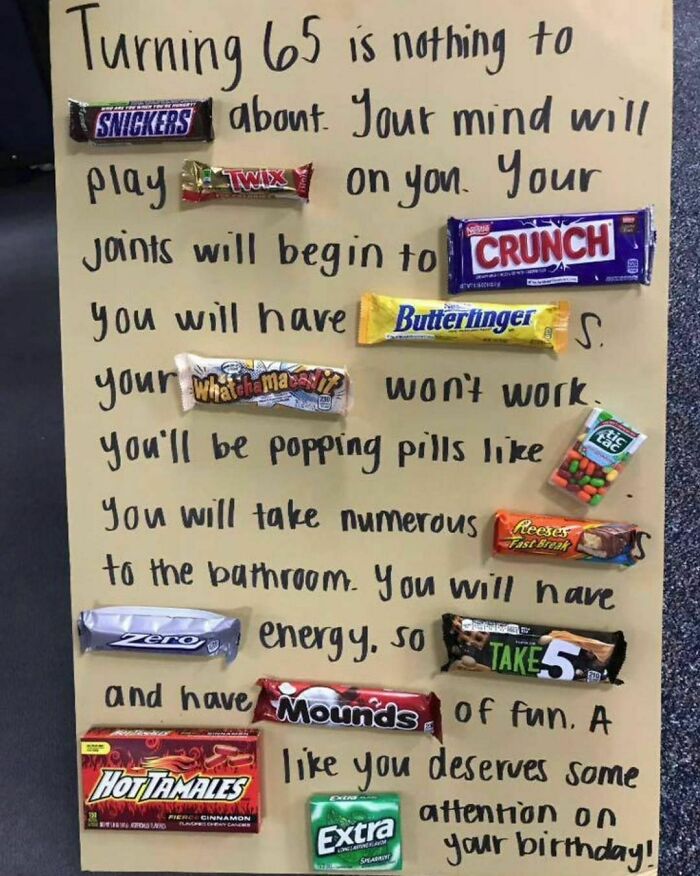 Turning 65 is nothing to
SNICKERS about. Your mind will
play TWIX on you. Your
joints will begin to Nestle CRUNCH
you will have Butterfinger s.
your Whatchamacallit won't work.
you'll be popping pills like tic tac
You will take numerous Reese's Fast Break s
to the bathroom. You will have
Zero energy, so TAKE 5
and have Mounds of fun. A
HOT TAMALES FIERCE CINNAMON like you deserves some
Extra LONG LASTING FLAVOR SPEARMINT attention on
your birthday!